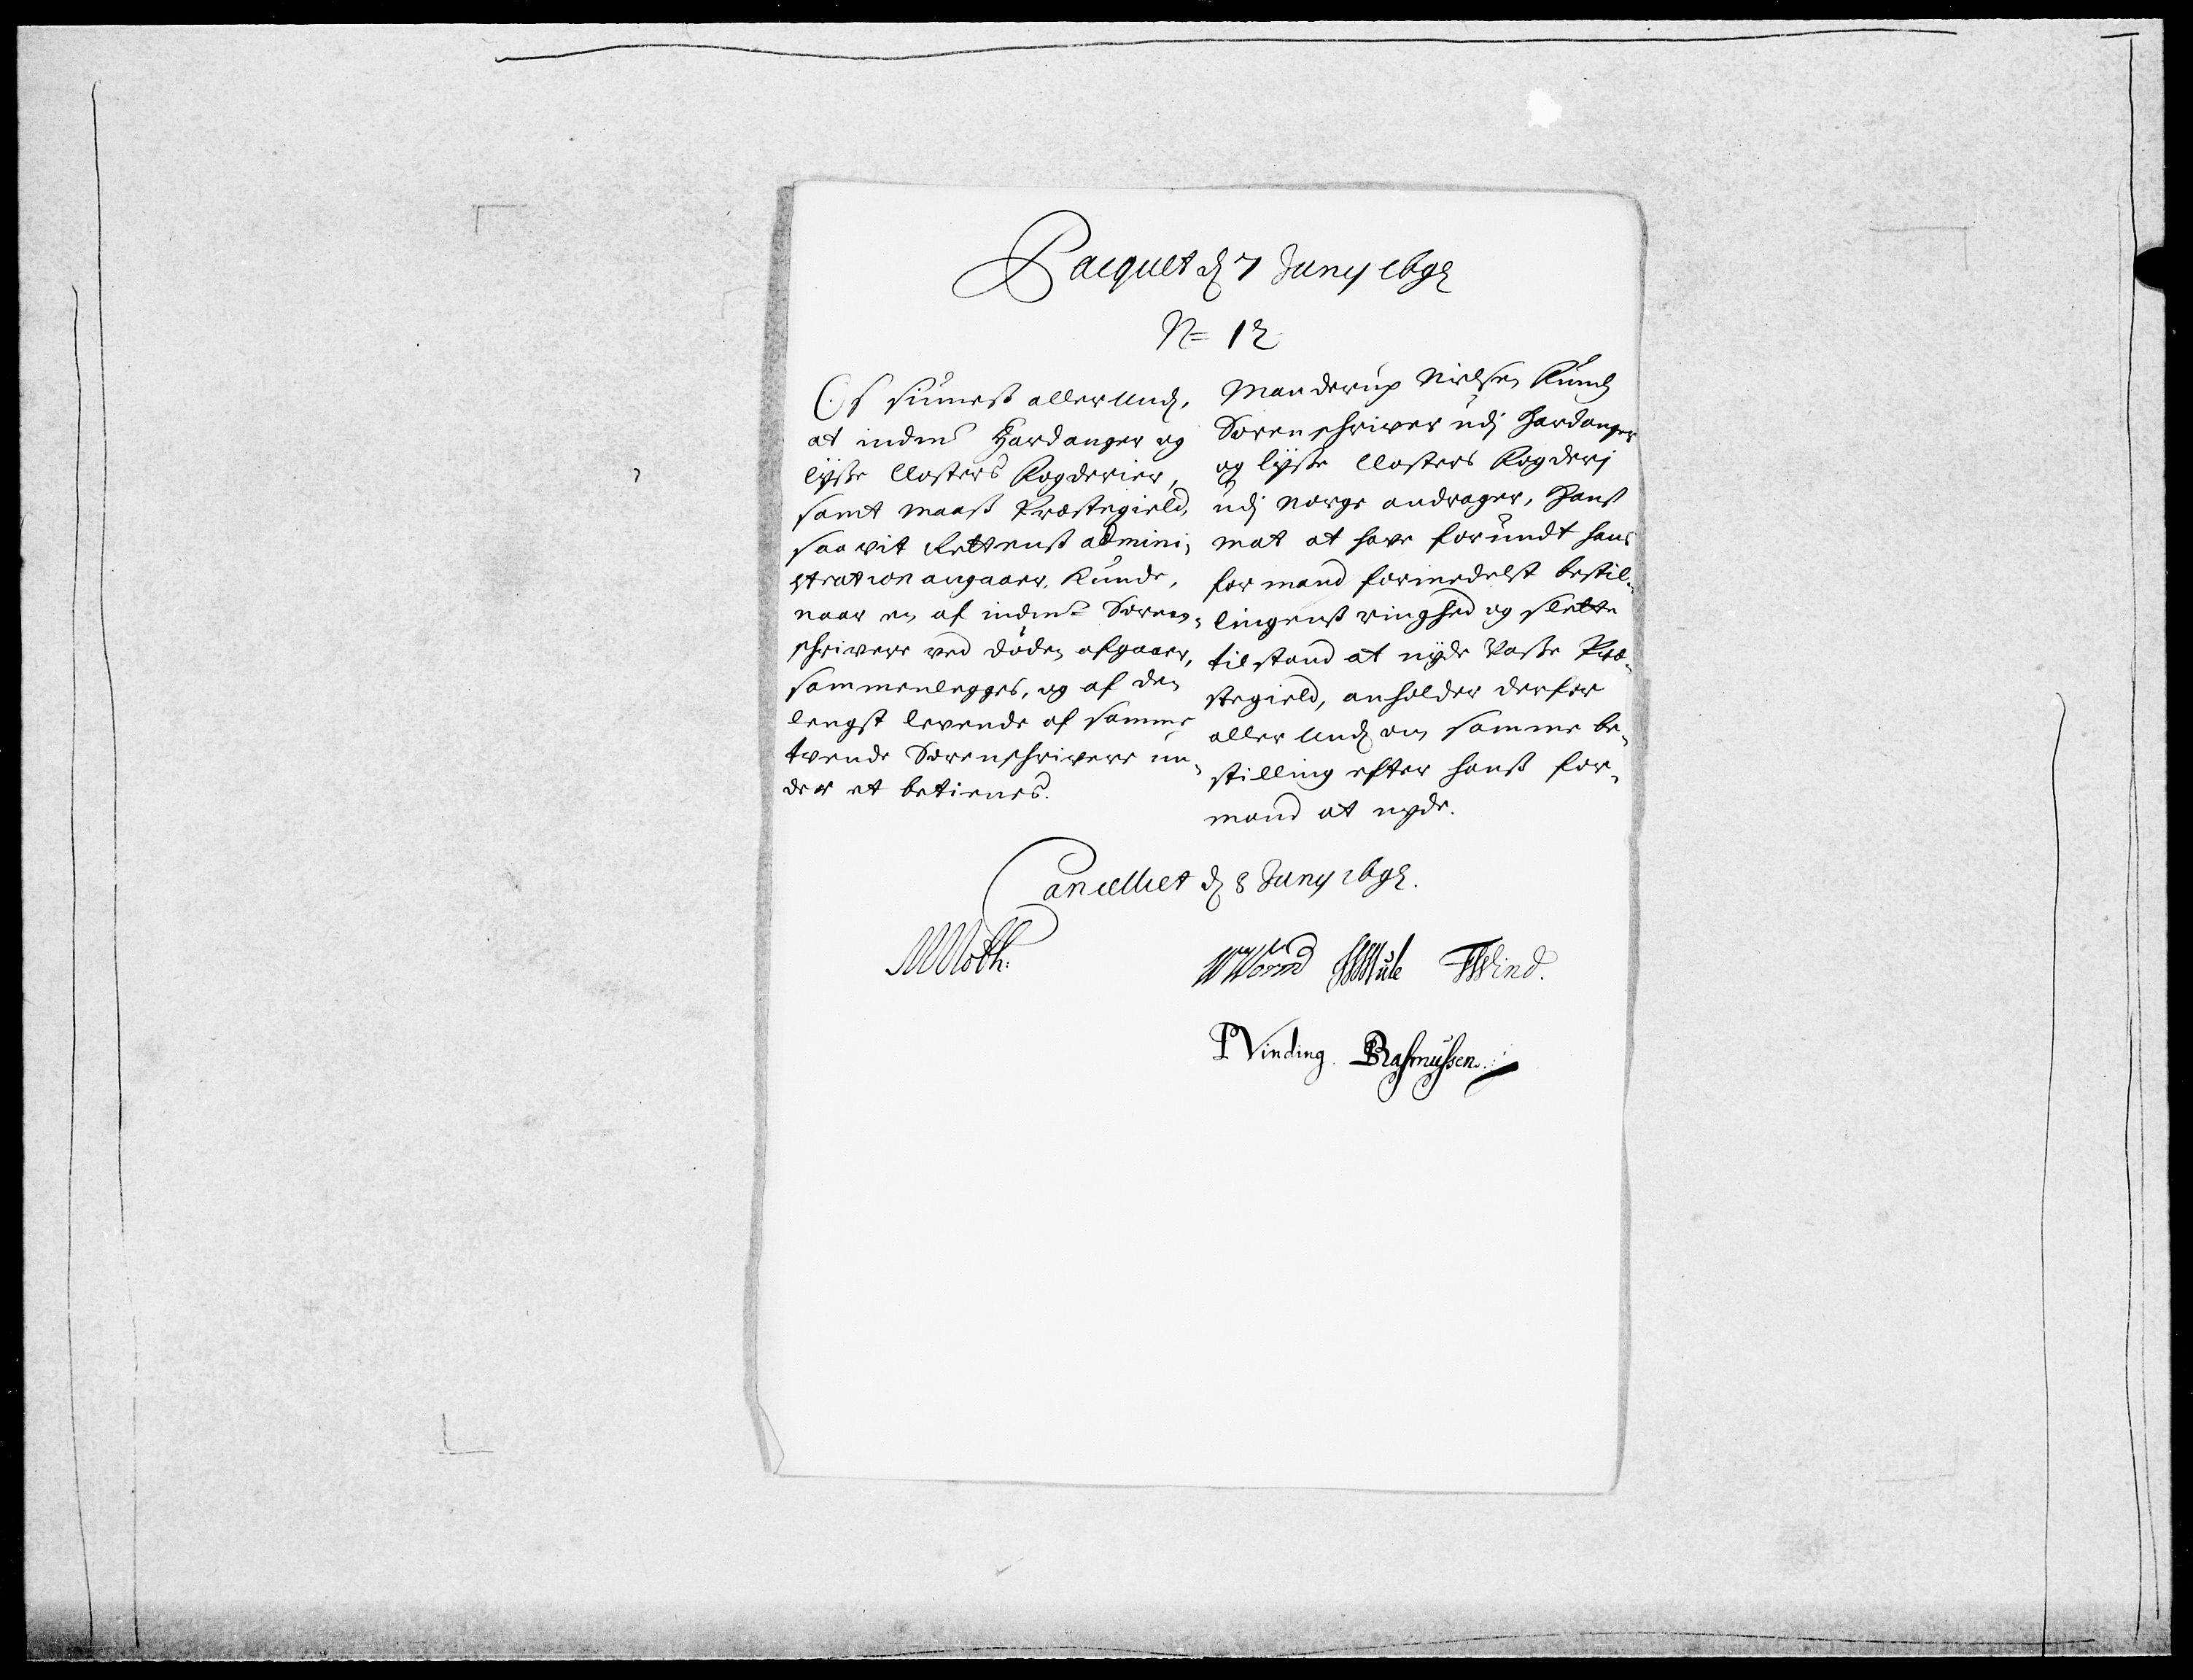 Pacquet d 7 Juny 1692
N= 12
Os siunest aller und,
at indens Hardanger og
lysse Closters Fogderier,
samt Maaß Præstegield,
saavit Rettenß admini,
stration angaaer, Kunde,
naar en af indens Soren,
schrivere ved döden afgaaer,
sammenlegges, og af den
lengst levende af samme
tvende Sorenschrivere un,
der et betienes.
Manderup Nielsen
Sorenschriver udj Hardanger
og lysse Closters Fogderj
udj Norge andrager, Hanß
Mat at have forundt hans
formand formedelst bestil,
lingenß ringhed og slette
tilstand at nyde Voße Præ,
stegield, anholder derfor
aller und om samme be,
stilling efter hanß for,
mand at nyde.
Cancelliet d 8 Juny 1692.
MMoth:
WWorm HMule TWind.
PVinding. BRasmussen.